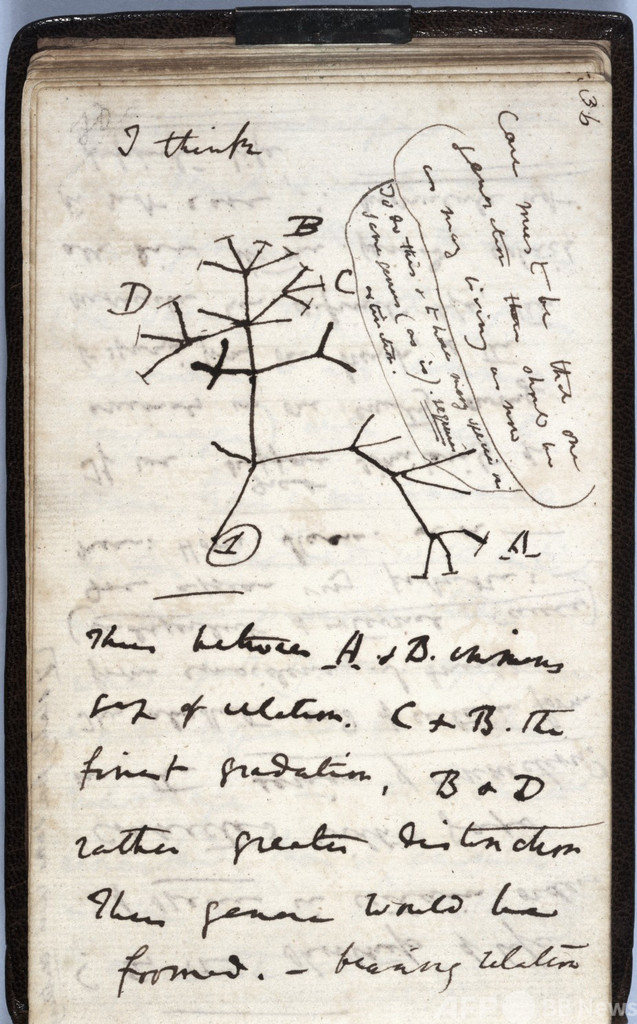 36
I think
B
C
D
A
1
Case must be that one
generation then should be
as many living as now
To do this & to have many species in
same genus (as is). requires
extinction.
Thus between A & B. immens
gap of relation. C & B. the
finest gradation, B & D
rather greater distinction
Thus genera would be
formed. — bearing relation
BB News